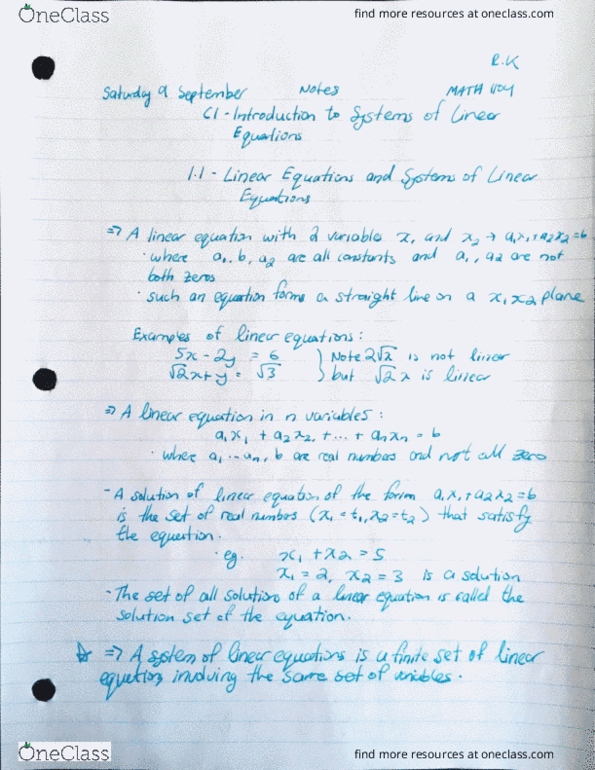 OneClass
find more resources at oneclass.com
R.K
Saturday 9 September Notes MATH 1104
C1 - Introduction to Systems of Linear
Equations
1.1 - Linear Equations and Systems of Linear
Equations
⇒ A linear equation with 2 variables x₁ and x₂ → a₁x₁+a₂x₂=b
· where a₁, b, a₂ are all constants and a₁, a₂ are not
both zeros
· such an equation forms a straight line on a x₁x₂ plane
Examples of linear equations:
5x - 2y = 6 } Note 2√x is not linear
√2x + y = √3 but √2 x is linear
⇒ A linear equation in n variables:
a₁x₁ + a₂x₂ + ... + aₙxₙ = b
· where a₁ ... aₙ, b are real numbers and not all zero
- A solution of linear equation of the form a₁x₁+a₂x₂=b
is the set of real numbers (x₁=t₁, x₂=t₂) that satisfy
the equation.
· eg. x₁ + x₂ = 5
x₁ = 2, x₂ = 3 is a solution
- The set of all solutions of a linear equation is called the
solution set of the equation.
☆ ⇒ A system of linear equations is a finite set of linear
equations involving the same set of variables.
OneClass
find more resources at oneclass.com